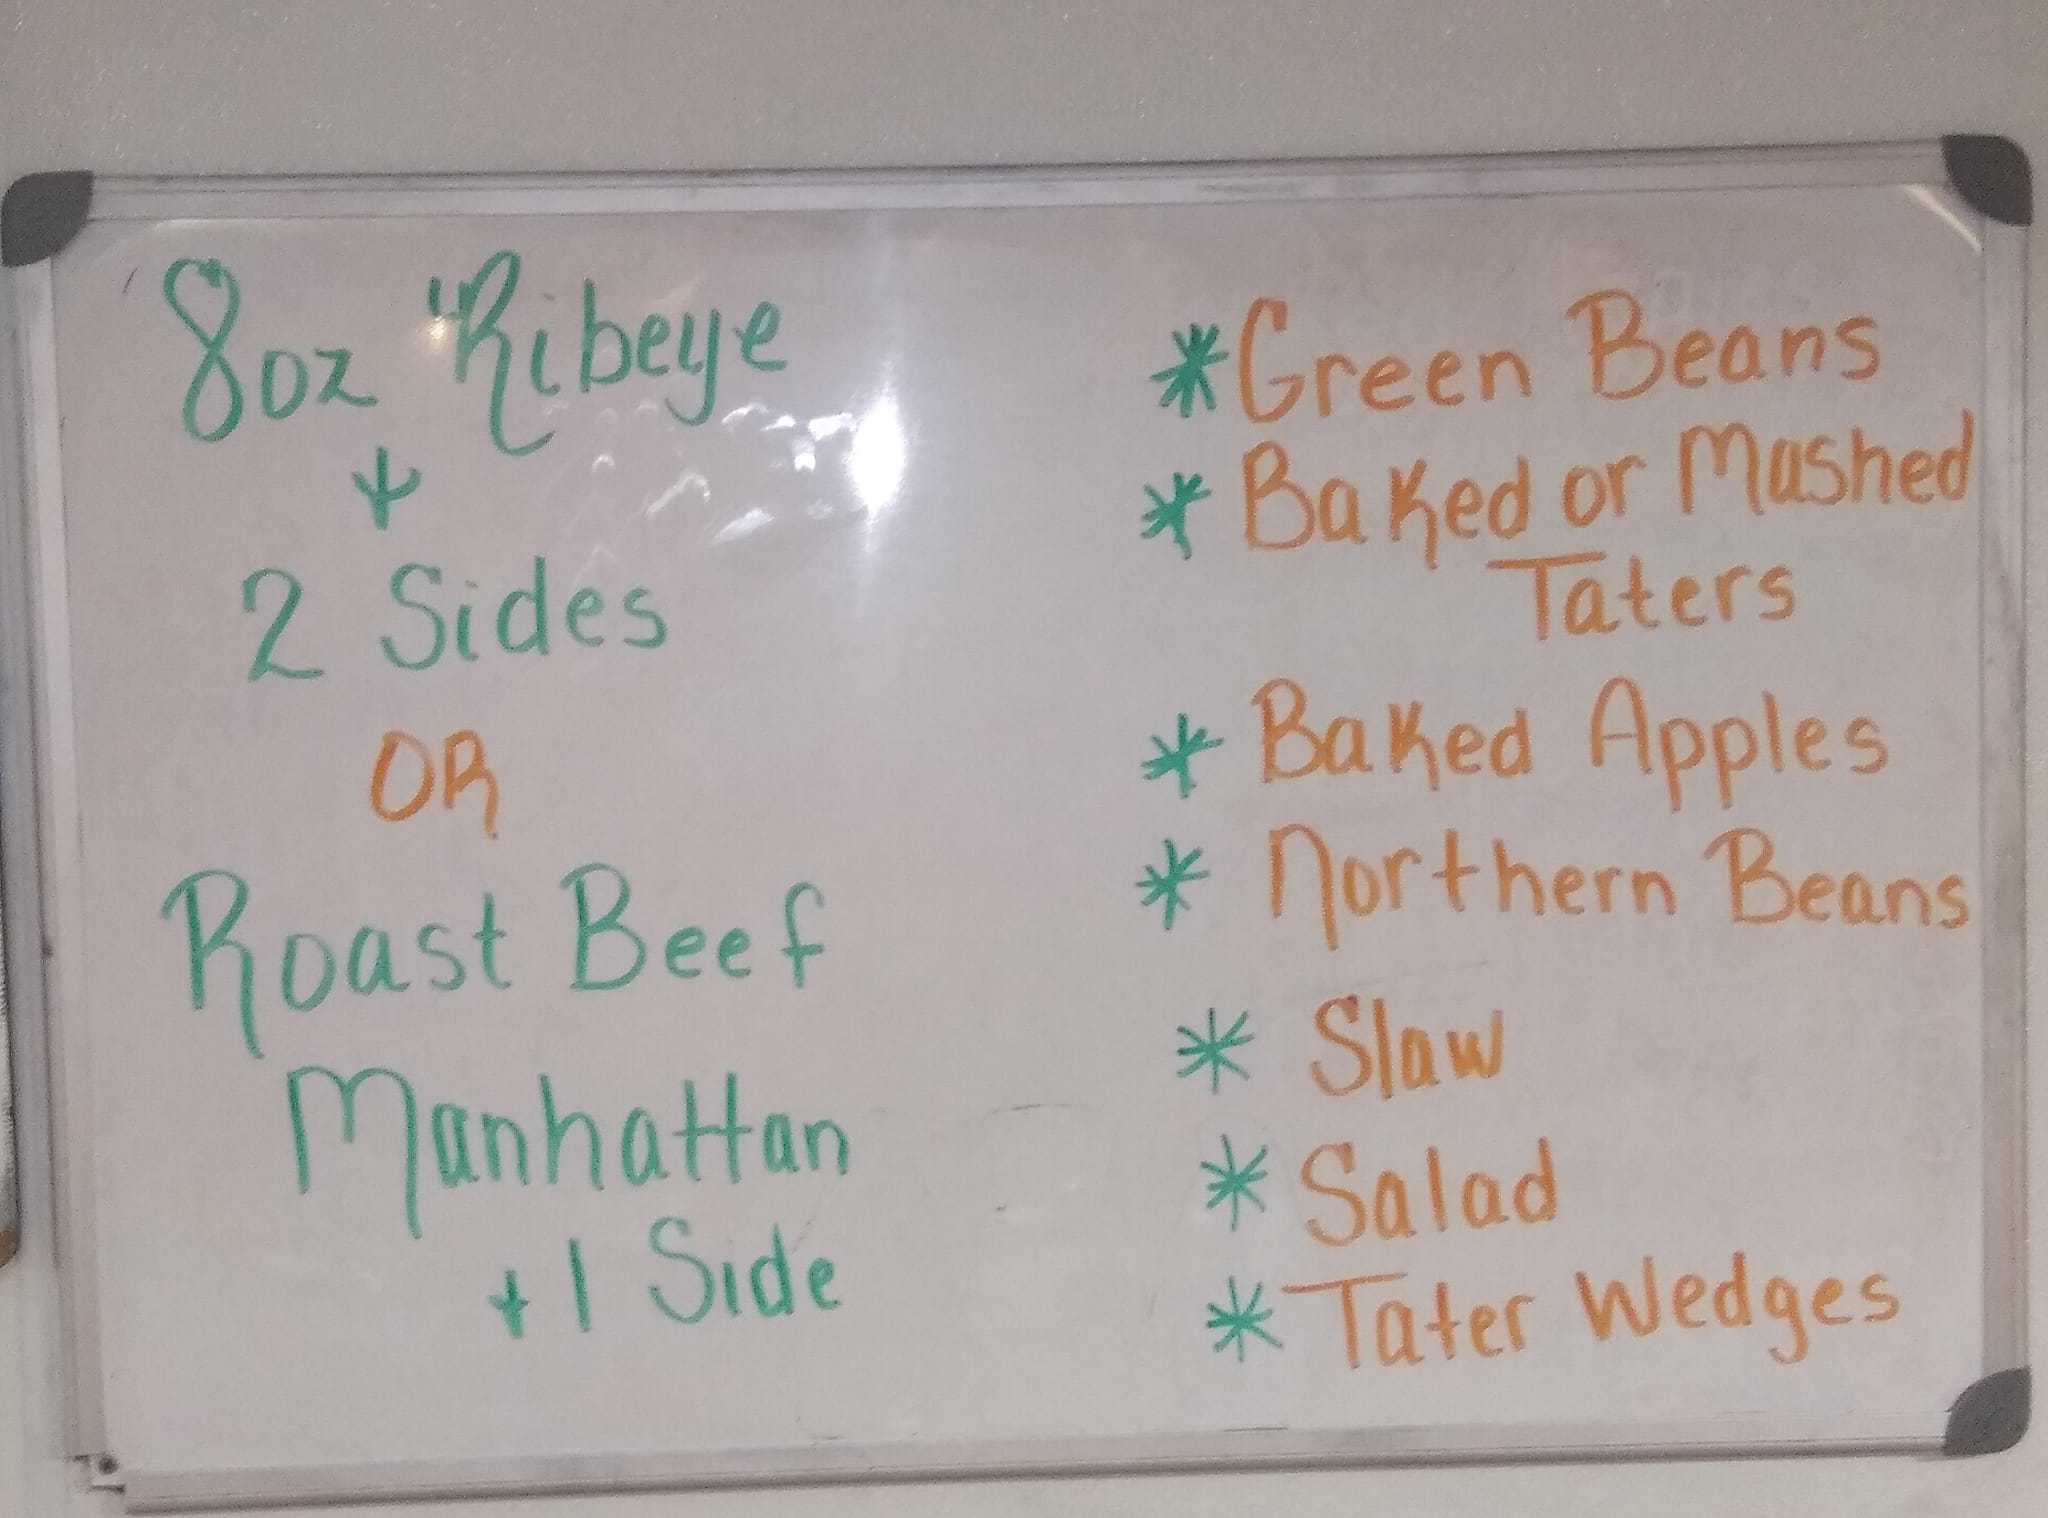 8oz "Ribeye
+
2 Sides
OR
Roast Beef
Manhattan
+ 1 Side
* Green Beans
* Baked or Mashed
Taters
* Baked Apples
* Northern Beans
* Slaw
* Salad
* Tater Wedges